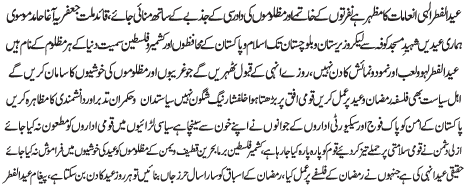 عید الفطر الٰہی انعامات کا مظہر ہے نفرتوں کے خاتمے اور مظلوموں کی دادرسی کے جذبے کے ساتھ منائی جائے، قائد ملت جعفریہ آغا حامد موسوی
ہماری عیدیں شہید مسجد کوفہ سے لیکر وزیرستان و بلوچستان تک اسلام و پاکستان کے محافظوں اور کشمیر و فلسطین سمیت دنیا کے ہر مظلوم کے نام ہیں
عید الفطر لہو و لعب اور نمود و نمائش کا دن نہیں، روزے انہی کے قبول ٹھہریں گے جو غریبوں اور مظلوموں کی خوشیوں کا سامان کریں گے
اہل سیاست بھی فلسفہ رمضان و عید پر عمل کریں قومی افق پر بڑھتا ہوا خلفشار نیگ شگون نہیں سیاستدان و حکمران تدبر اور دانشمندی کا مظاہرہ کریں
پاکستان کے امن کو پاک فوج اور سیکیورٹی اداروں کے جوانوں نے اپنے خون سے سینچا ہے سیاسی لڑائیوں میں قومی اداروں کو مطعون نہ کیا جائے
ازلی دشمن نے قومی سلامتی پر حملے تیز کر دیئے قوم کو پارہ پارہ کیا جا رہا ہے، کشمیر فلسطین برما بحرین قطیف و یمن کے مظلوموں کو عید کی خوشیوں میں فراموش نہ کیا جائے
حقیقی عید انہی کی ہے جنہوں نے رمضان کے فلسفہ پر عمل کیا، رمضان کے اسباق کو سارا سال حرز جاں بنائیں تو ہر روز عید کا دن بن سکتا ہے، پیغام عید الفطر